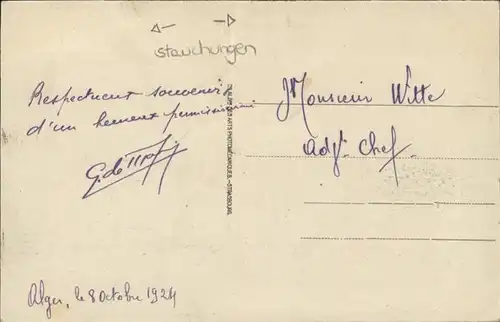 stauchungen
Respectueux souvenir
d'un heureux permissionnaire
G. de
Monsieur Witte
Adjt Chef
Alger, le 8 Octobre 1924